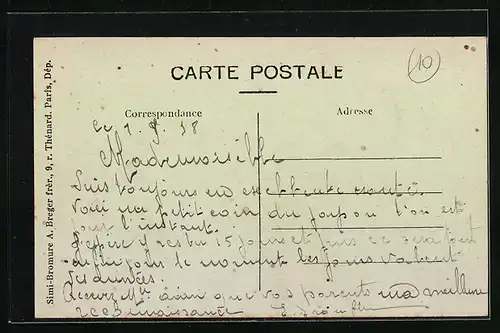 (10)
CARTE POSTALE
Correspondance
Adresse
Simi-Bromure A. Breger frèr., 9, r. Thénard. Paris, Dép.
Ce 1. 9. 38
Mademoiselle
Suis toujours en excellente santé.
Voici un petit coin du on est
pour l'instant.
J'espère y rester 15 jours et puis ce sera tout
pour le moment les jours valent
des années.
Recevez Mlle ainsi que vos parents ma meilleure
reconnaissance